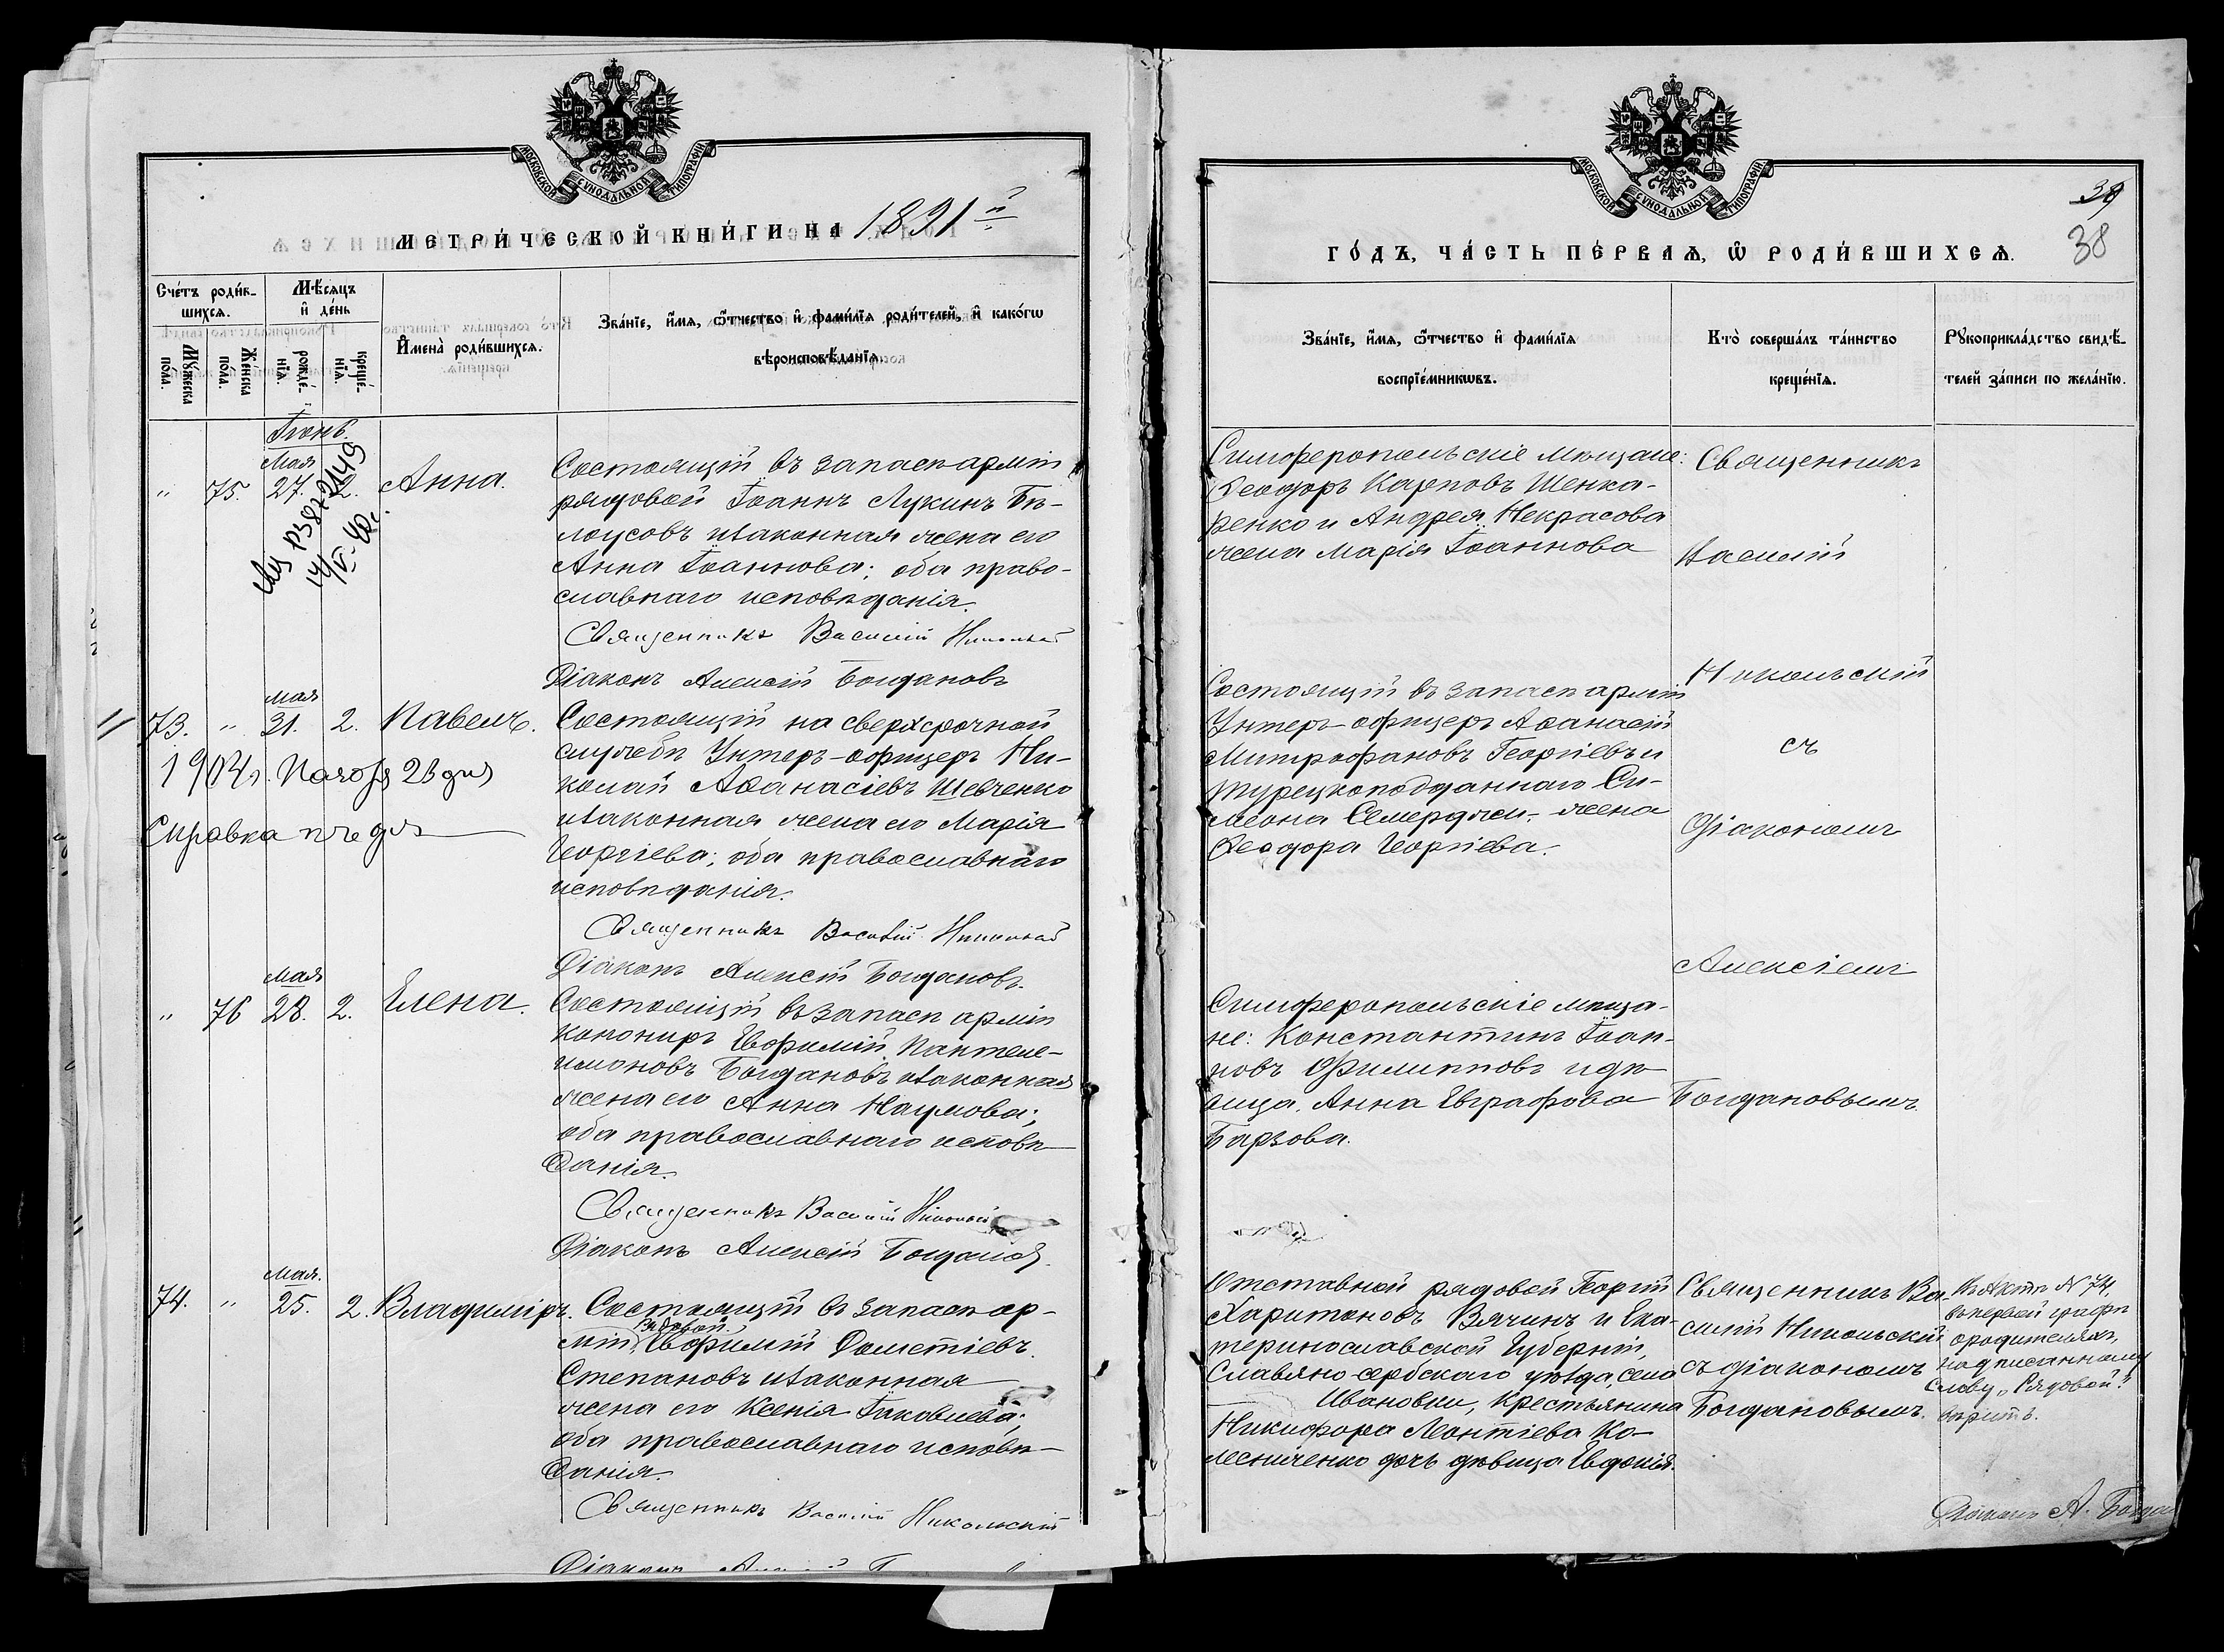 МОСКОВСКОЙ СѴНОДАЛЬНОЙ ТИПОГРАФІИ
МЕТРИ́ЧЕСКОЙ КНИ́ГИ НА 1891й
Сче́тъ роди́вшихся.
Мѣ́сяцъ и҆ де́нь
Мꙋ́жеска по́ла.
Же́нска по́ла.
рожде́нїя.
креще́нїя.
И҆мена̀ роди́вшихся.
Зва́нїе, и҆́мя, ѻ҆́тчество и҆ фами́лїя роди́телей, и҆ како́гѡ
вѣроисповѣ́данїя.
Іюнь.
Мая
" 75. 27. 2. Анна.
Состоящій въ запасѣ арміи
рядовой Іоаннъ Лукинъ Бѣ-
лоусовъ и законная жена его
Анна Іоаннова; оба право-
славнаго исповѣданія.
Священникъ Василій Никольскій
Діаконъ Алексій Богдановъ
мая
73. " 31. 2. Павелъ.
Состоящій на сверхсрочной
службѣ Унтеръ-офицеръ Ни-
колай Аѳанасіевъ Шевченко
и законная жена его Марія
Георгіева; оба православнаго
исповѣданія.
1904 г. 23 дня
Справка
Священникъ Василій Никольскій
Діаконъ Алексій Богдановъ.
мая
" 76 28. 2. Елена.
Состоящій въ запасѣ арміи
канониръ Евфимій Пантеле-
имоновъ Богдановъ и законная
жена его Анна Наумова;
оба православнаго исповѣ-
данія.
Священникъ Василій Никольскій
Діаконъ Алексій Богдановъ.
мая.
74. " 25. 2. Владиміръ.
Состоящій въ запасѣ ар-
міи рядовой Евфимій Дометіевъ
Степановъ и законная
жена его Ксенія Іаковлева;
оба православнаго исповѣ-
данія.
Священникъ Василій Никольскій
Діаконъ
МОСКОВСКОЙ СѴНОДАЛЬНОЙ ТИПОГРАФІИ
39
38
ГО́ДЪ, ЧА́СТЬ ПЕ́РВАЯ, Ѡ҆ РОДИ́ВШИХСЯ.
Зва́нїе, и҆́мя, ѻ҆́тчество и҆ фами́лїя
воспрїе́мникѡвъ.
Кто̀ соверша́лъ та́инство
креще́нїя.
Рꙋкоприкла́дство свидѣ́-
телей за́писи по жела́нїю.
Симферопольскіе мѣщане:
Ѳеодоръ Карповъ Шенка-
ренко и Андрея Некрасова
жена Марія Іоаннова
Священникъ
Василій
Никольскій
съ
Діакономъ
Алексіемъ
Богдановымъ.
Состоящій въ запасѣ арміи
Унтеръ-офицеръ Аѳанасій
Митрофановъ Георгіевъ и
турецкоподданнаго Си-
меона Семерджи, жена
Ѳеодора Георгіева.
Симферопольскіе мѣща-
не: Константинъ Іоан-
новъ Филипповъ и дѣ-
вица Анна Евграфова
Барзова.
Отставной рядовой Георгій
Харитоновъ Вячинъ и Ека-
теринославской Губерніи,
Славяно-сербскаго уѣзда, села
Ивановки, крестьянина
Никифора Леонтіева Ко-
лесниченко дочь дѣвица Евдокія.
Священникъ Ва-
силій Никольскій
съ діакономъ
Богдановымъ.
Въ актѣ № 74,
въ первой графѣ
о родителяхъ,
надписанному
слову „Рядовой"
вѣрить.
Діаконъ А. Богдановъ